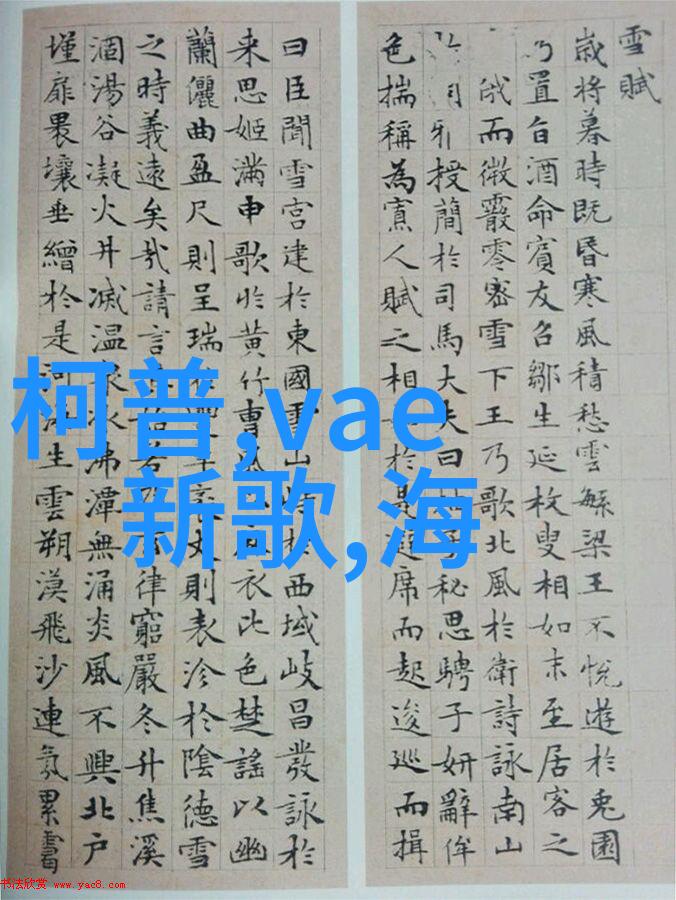 雪賦
歲將暮時既昏寒風積愁雲繁梁王不悅遊於兔園
乃置旨酒命賓友召鄒生延枚叟相如末至居客之
俄而微霰零密雪下王乃歌北風於衛詩詠南山
雅授簡於司馬大夫曰抽子秘思騁子妍辭侔
色揣稱為寡人賦之相如於是避席而起逡巡而揖
曰臣聞雪宮建於東國雪山峙於西域岐昌發詠於
来思姬滿申歌於黃竹曹風以麻衣比色楚謠以幽
蘭儷曲盈尺則呈瑞於豐年袤丈則表沴於陰德雪
之時義遠矣哉請言其始若乃玄律窮嚴冬升焦溪
涸湯谷凝火井滅温泉冰沸潭無涌炎風不興北户
墐扉裸壤垂繒於是河海生雲朔漠飛沙連氛累靄
柯普,vae
新歌,海
书法欣赏 www.yac8.com